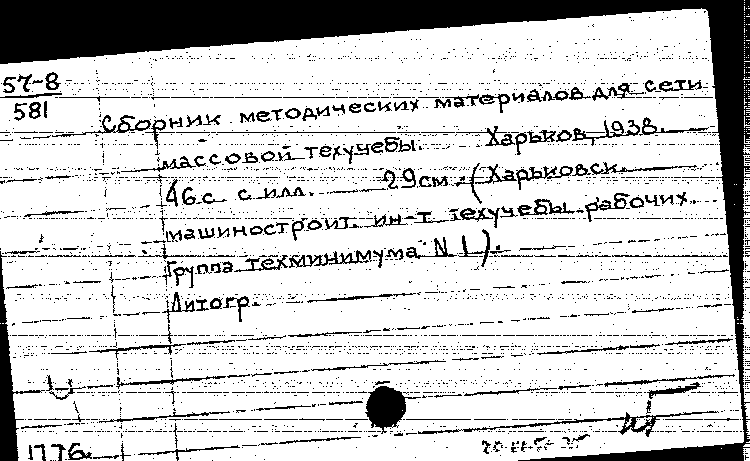 57-8
581
Сборник методических материалов для сети
массовой техучебы. Харьков, 1938.
46с. с илл. 29см. (Харьковск.
машиностроит. ин-т техучебы рабочих.
Группа техминимума N 1).
Литогр.
1776.